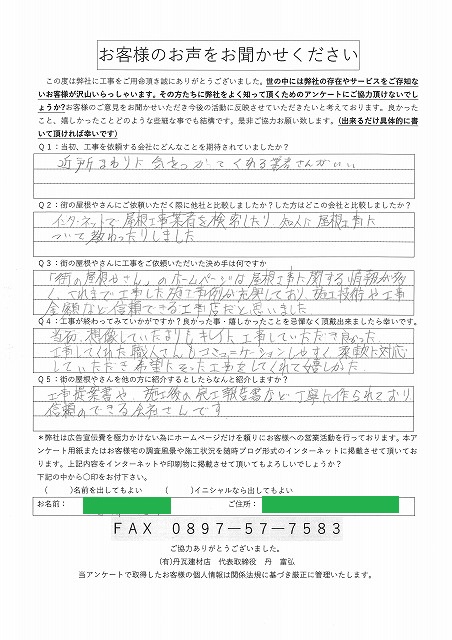 お客様のお声をお聞かせください
この度は弊社に工事をご用命頂き誠にありがとうございました。世の中には弊社の存在やサービスをご存知な
いお客様が沢山いらっしゃいます。その方たちに弊社をよく知って頂くためのアンケートにご協力頂けないでし
ょうか?お客様のご意見をお聞かせいただき今後の活動に反映させていただきたいと考えております。良かった
こと、嬉しかったことどのような些細な事でも結構です。是非ご協力お願い致します。(出来るだけ具体的に書
いて頂ければ幸いです)
Q1:当初、工事を依頼する会社にどんなことを期待されていましたか?
近所まわりに気をつかってくれる業者さんがいい
Q2:街の屋根やさんにご依頼いただく際に他社と比較しましたか?した方はどこの会社と比較しましたか?
インターネットで屋根工事業者を検索したり、知人に屋根工事に
ついて教わったりしました
Q3:街の屋根やさんに工事をご依頼いただいた決め手は何ですか
「街の屋根やさん」のホームページは屋根工事に関する情報が多
く、これまで工事した施工事例が充実しており、施工技術や工事
金額など信頼できる工事店だと思いました
Q4:工事が終わってみていかがですか?良かった事・嬉しかったことを忌憚なく頂戴出来ましたら幸いです。
当初、想像していたよりもキレイに工事していただき良かった
工事してくれた職人さんもコミュニケーションしやすく、柔軟に対応
していただき希望に沿った工事をしてくれて嬉しかった
Q5:街の屋根やさんを他の方に紹介するとしたらなんと紹介しますか?
工事提案書や、施工後の完工報告書など丁寧に作られており
信頼のできる会社さんです
*弊社は広告宣伝費を極力かけない為にホームページだけを頼りにお客様への営業活動を行っております。本ア
ンケート用紙またはお客様宅の調査風景や施工状況を随時ブログ形式のインターネットに掲載させて頂いてお
ります。上記内容をインターネットや印刷物に掲載させて頂いてもよろしいでしょうか?
下記の中から〇印をお付下さい。
( )名前を出してもよい ( )イニシャルなら出してもよい
お名前: ご住所:
FAX 0897-57-7583
ご協力ありがとうございました。
(有)丹瓦建材店 代表取締役 丹 富弘
当アンケートで取得したお客様の個人情報は関係法規に基づき厳正に管理いたします。